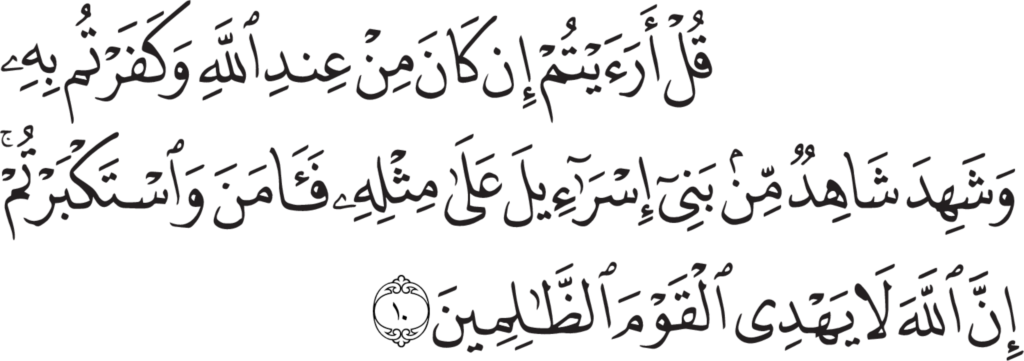 قُلْ أَرَءَيْتُمْ إِن كَانَ مِنْ عِندِ ٱللَّهِ وَكَفَرْتُم بِهِۦ
وَشَهِدَ شَاهِدٌ مِّنۢ بَنِىٓ إِسْرَٰٓءِيلَ عَلَىٰ مِثْلِهِۦ فَـَٔامَنَ وَٱسْتَكْبَرْتُمْ ۚ
إِنَّ ٱللَّهَ لَا يَهْدِى ٱلْقَوْمَ ٱلظَّٰلِمِينَ ١٠